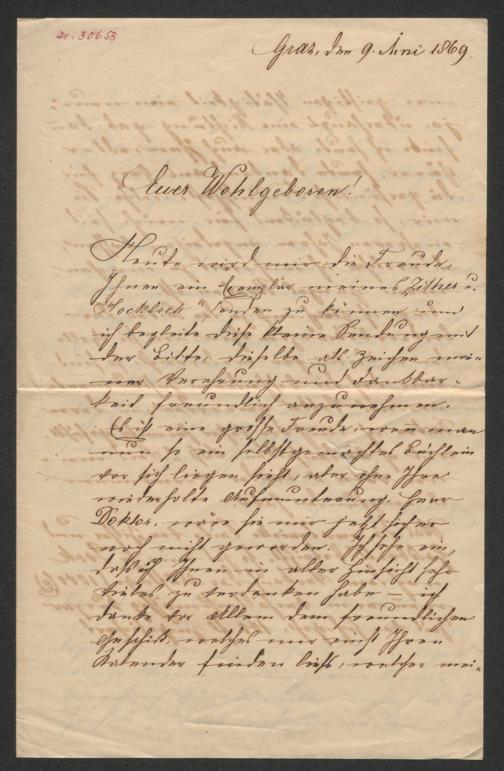 Zr. 30653
Graz, den 9. Juni 1869.
Euer Wohlgeboren!
Heute wird mir die Freude,
Ihnen ein Exemplar meines „Zither u.
Hackbret" senden zu können und
ich begleite diese kleine Sendung mit
der Bitte, dieselbe als Zeichen mei-
ner Verehrung und Dankbar-
keit freundlich anzunehmen.
Es ist eine große Freude, wen man
nun so ein selbstgemachtes Büchlein
vor sich liegen sieht, aber ohne Ihre
wiederholte Aufmunterung, Herr
Doktor, wäre sie mir jetzt sicher
noch nicht geworden. Ich sehe ein,
daß ich Ihnen in aller Hinsicht sehr
vieles zu verdanken habe – ich
danke vor Allem dem freundlichen
Geschik, welches mir einst Ihren
Kalender finden ließ, welcher mei-